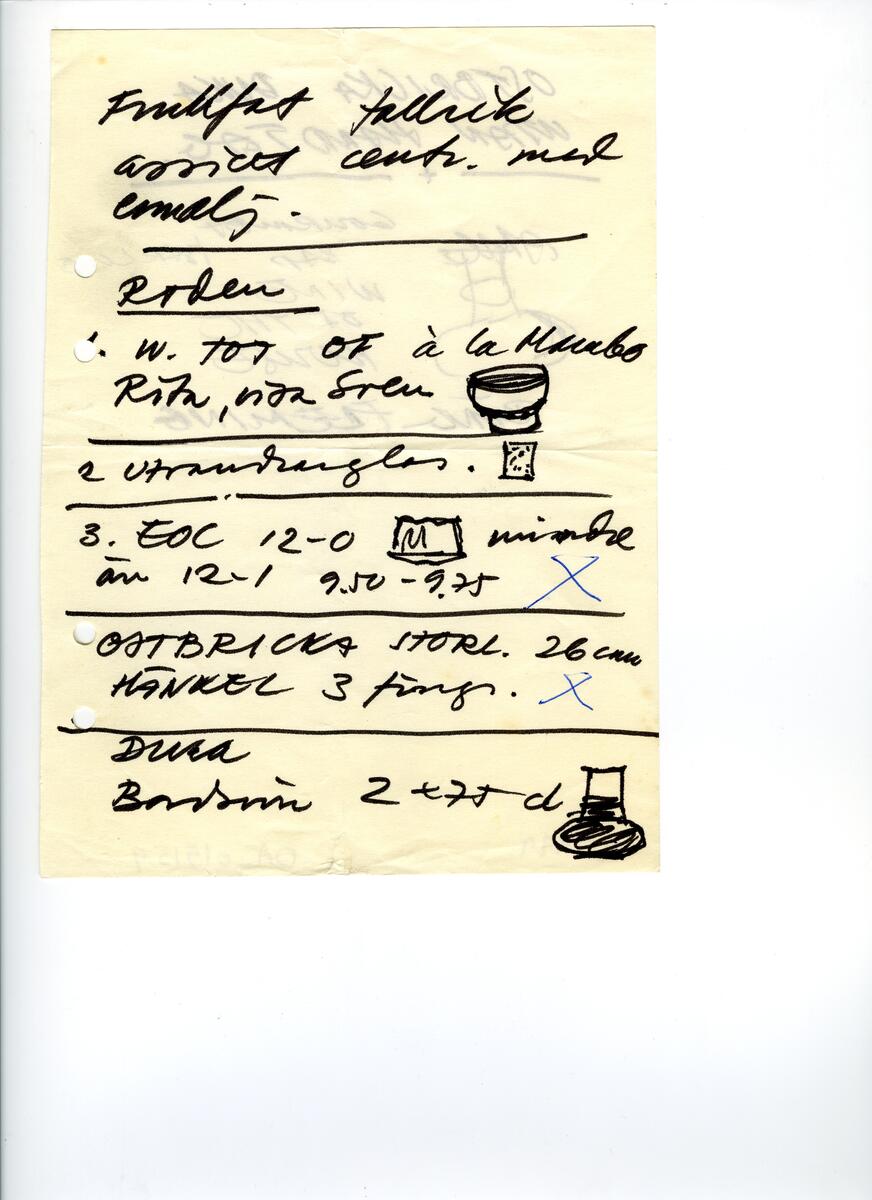 Fruktfat tallrik
assiett centr. med
emalj.
Roden
1. W. TOT OF à la Mambo
Rita, visa Sven
2 Utrandsanglas.
3. EOC 12-0 M mindre
än 12-1 9.50-9.75 X
OSTBRICKA STORL. 26 cm
HÄNKEL 3 fing. X
DUKA
Bordsvin 2 x 75 cl